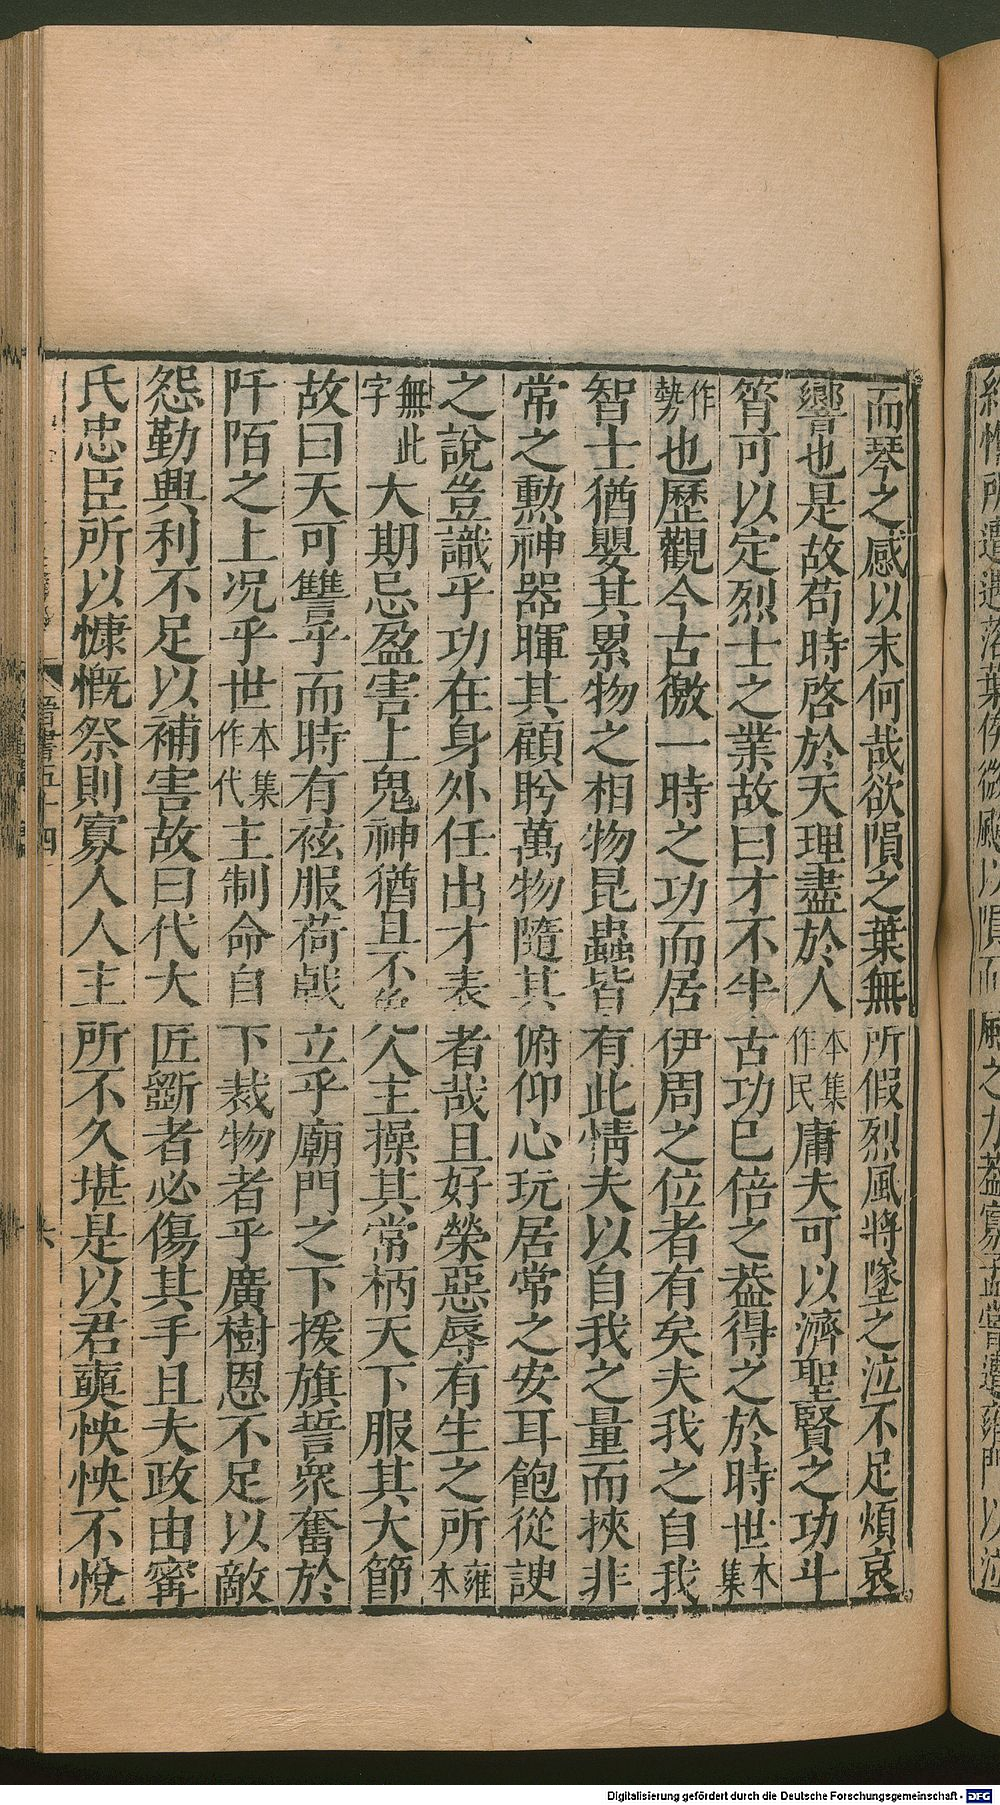 而琴之感以末何哉欲隕之葉無所假烈風將墜之泣不足煩哀
響也是故苟時啓於天理盡於人本集作民庸夫可以濟聖賢之功斗
筲可以定烈士之業故曰才不半古功已倍之葢得之於時世本集
作勢也歷觀今古徼一時之功而居伊周之位者有矣夫我之自我
智士猶嬰其累物之相物昆蟲皆有此情夫以自我之量而挾非
常之勲神器暉其顧盻萬物隨其俯仰心玩居常之安耳飽從諛
之說豈識乎功在身外任出才表者哉且好榮惡辱有生之所雍本
無此字大期忌盈害上鬼神猶且不免人主操其常柄天下服其大節
故曰天可讐乎而時有袨服荷戟立乎廟門之下援旗誓衆奮於
阡陌之上况乎世本集作代主制命自下裁物者乎廣樹恩不足以敵
怨勤興利不足以補害故曰代大匠斲者必傷其手且夫政由甯
氏忠臣所以慷慨祭則寡人人主所不久堪是以君奭怏怏不悅
晉書五十四
六
Digitalisierung gefördert durch die Deutsche Forschungsgemeinschaft - DFG